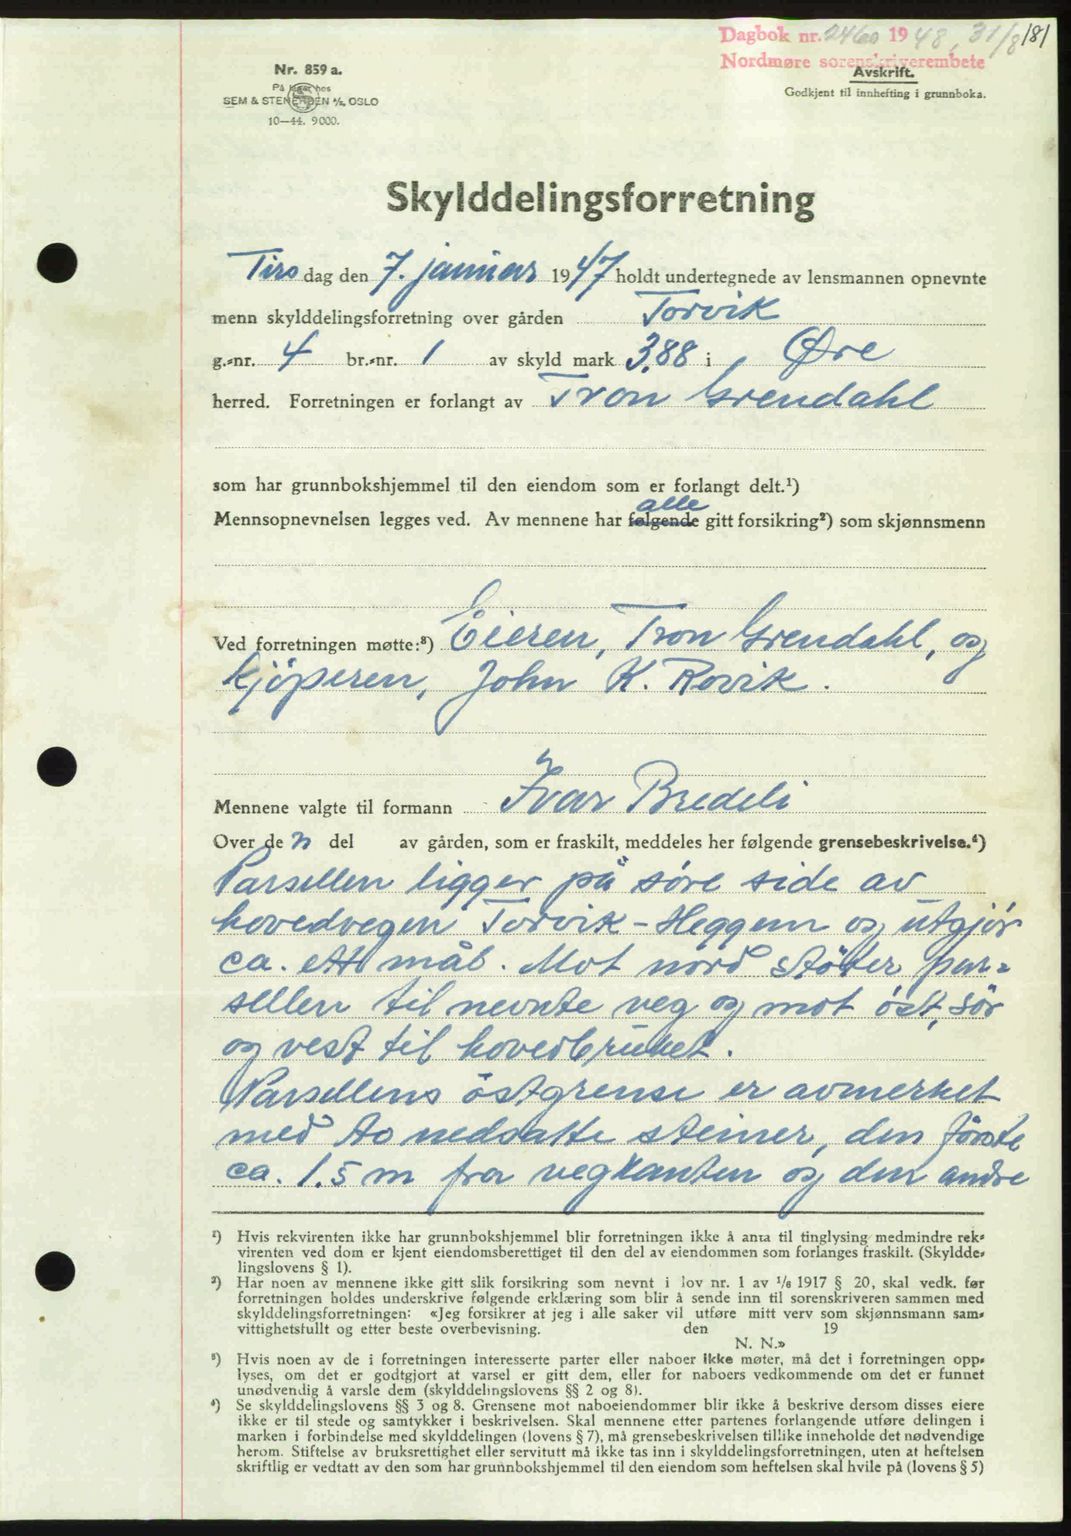 Dagbok nr. 2460 1948, 31/8 181
Nordmøre sorenskriverembete
Avskrift.
Godkjent til innhefting i grunnboka.
Nr. 859 a.
På lager hos
SEM & STENERSEN A/S, OSLO
10—44. 9000.
Skylddelingsforretning
Tirsdag den 7. januar 1947 holdt undertegnede av lensmannen opnevnte
menn skylddelingsforretning over gården Torvik
g.-nr. 4 br.-nr. 1 av skyld mark 3,88 i Øre
herred. Forretningen er forlangt av Tron Grendahl
som har grunnbokshjemmel til den eiendom som er forlangt delt.¹)
alle
Mennsopnevnelsen legges ved. Av mennene har følgende gitt forsikring²) som skjønnsmenn
Ved forretningen møtte:³) Eieren, Tron Grendahl, og
kjöperen, John K. Rovik.
Mennene valgte til formann Ivar Bredeli
Over den del av gården, som er fraskilt, meddeles her følgende grensebeskrivelse.⁴)
Parsellen ligger på söre side av
hovedvegen Torvik-Heggem og utgjör
ca. ett mål. Mot nord stöter par=
sellen til nevnte veg og mot öst, sör
og vest til hovedbruket.
Parsellens östgrense er avmerket
med to nedsatte steiner, den förste
ca. 1.5 m fra vegkanten og den andre
¹) Hvis rekvirenten ikke har grunnbokshjemmel blir forretningen ikke å anta til tinglysing medmindre rek-
virenten ved dom er kjent eiendomsberettiget til den del av eiendommen som forlanges fraskilt. (Skyldde-
lingslovens § 1).
²) Har noen av mennene ikke gitt slik forsikring som nevnt i lov nr. 1 av ¹/₆ 1917 § 20, skal vedk. før
forretningen holdes underskrive følgende erklæring som blir å sende inn til sorenskriveren sammen med
skylddelingsforretningen: «Jeg forsikrer at jeg i alle saker vil utføre mitt verv som skjønnsmann sam-
vittighetsfullt og etter beste overbevisning. den 19
N. N.»
³) Hvis noen av de i forretningen interesserte parter eller naboer ikke møter, må det i forretningen opp-
lyses, om det er godtgjort at varsel er gitt dem, eller for naboers vedkommende om det er funnet
unødvendig å varsle dem (skylddelingslovens §§ 2 og 8).
⁴) Se skylddelingslovens §§ 3 og 8. Grensene mot naboeiendommer blir ikke å beskrive dersom disses eiere
ikke er til stede og samtykker i beskrivelsen. Skal mennene etter partenes forlangende utføre delingen i
marken i forbindelse med skylddelingen (lovens § 7), må grensebeskrivelsen tillike inneholde det nødvendige
herom. Stiftelse av bruksrettighet eller servitutt må ikke tas inn i skylddelingsforretningen, uten at heftelsen
skriftlig er vedtatt av den som har grunnbokshjemmel til den eiendom som heftelsen skal hvile på (lovens § 5)